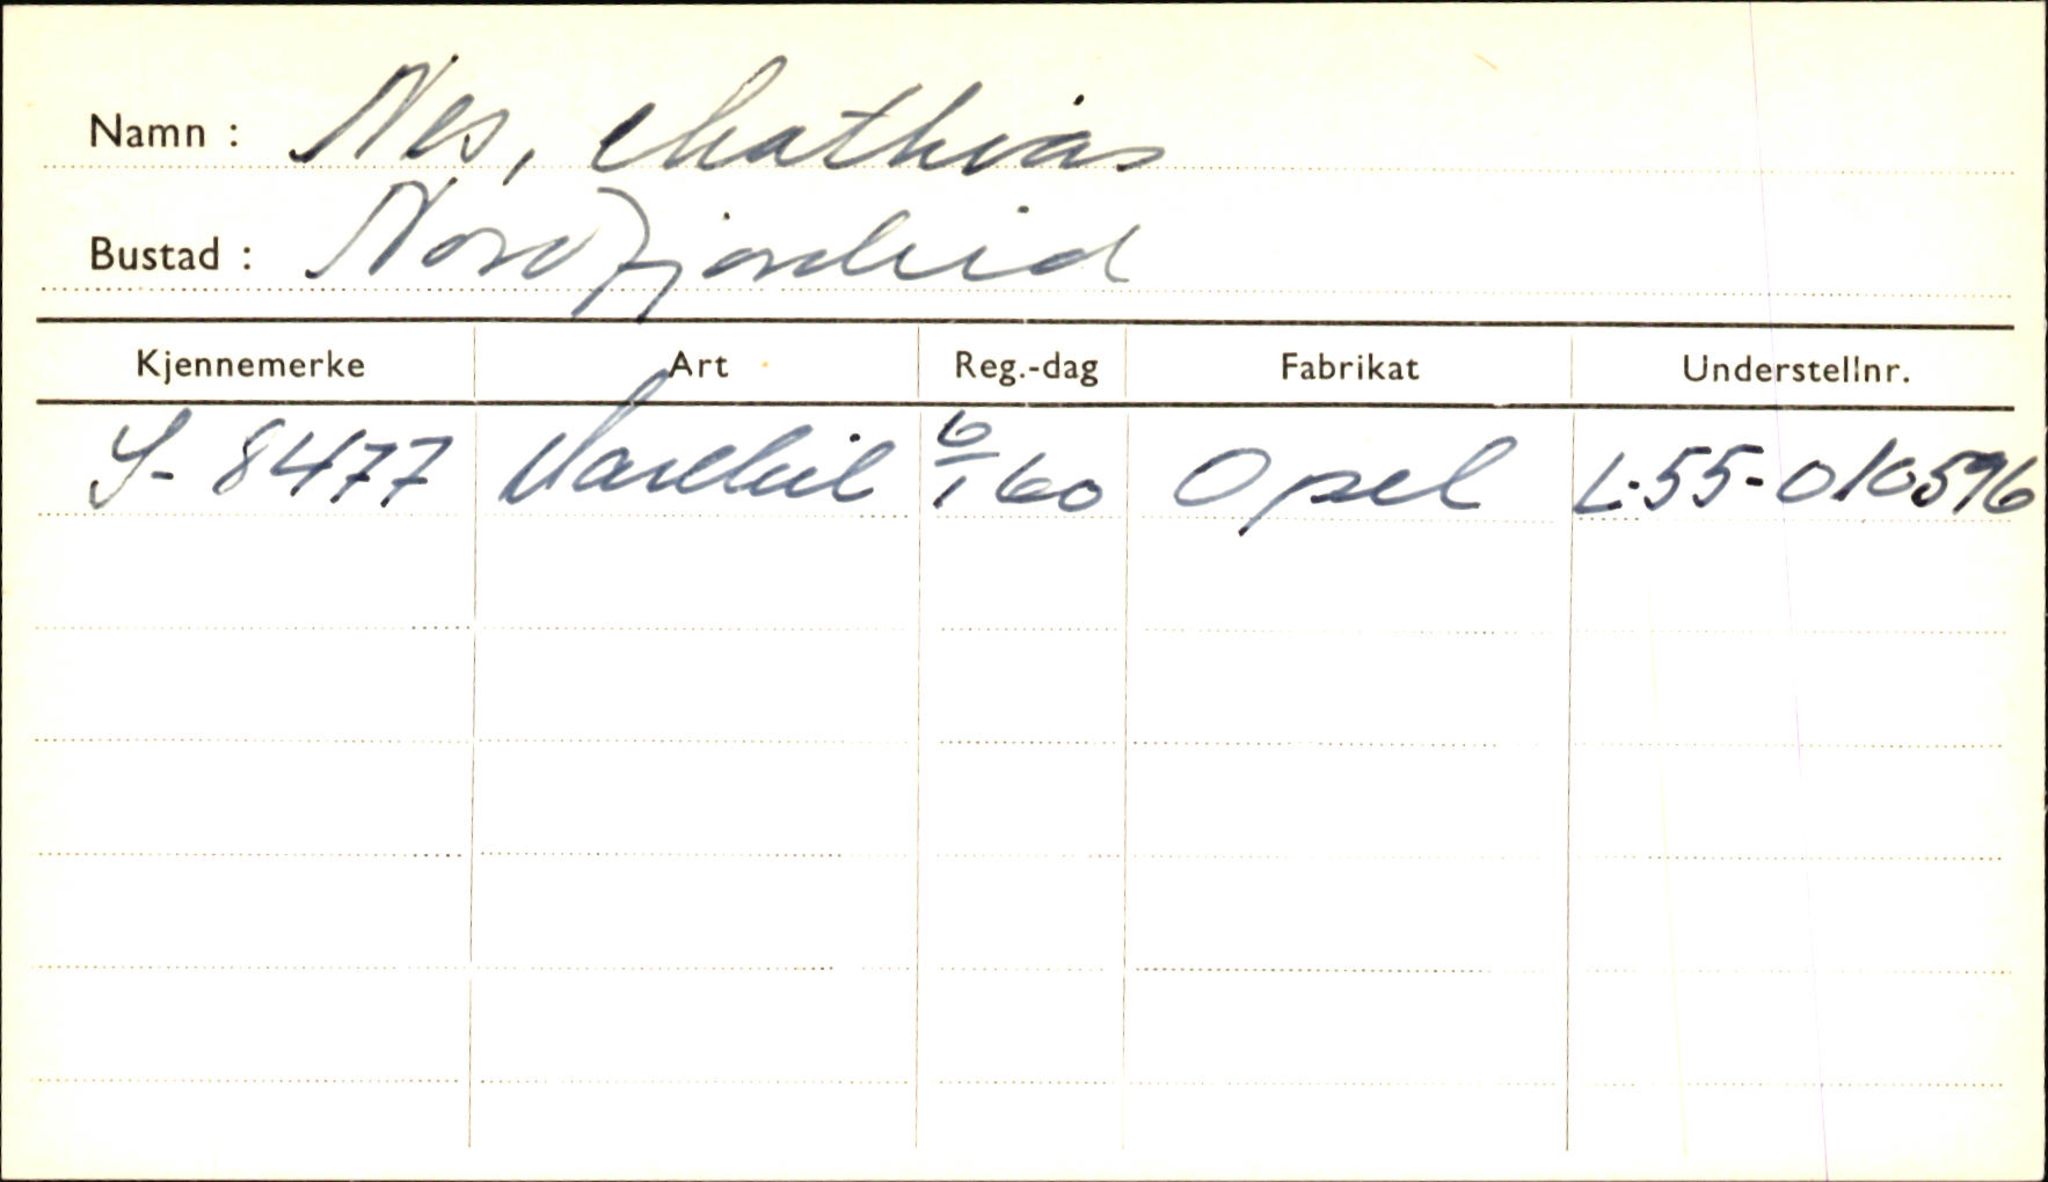 Namn : Nes, Mathias
Bustad : Nordfjordeid
Kjennemerke Art Reg.-dag Fabrikat Understellnr.
S- 8477 Varebil 6/1 60 Opel L-55-010596